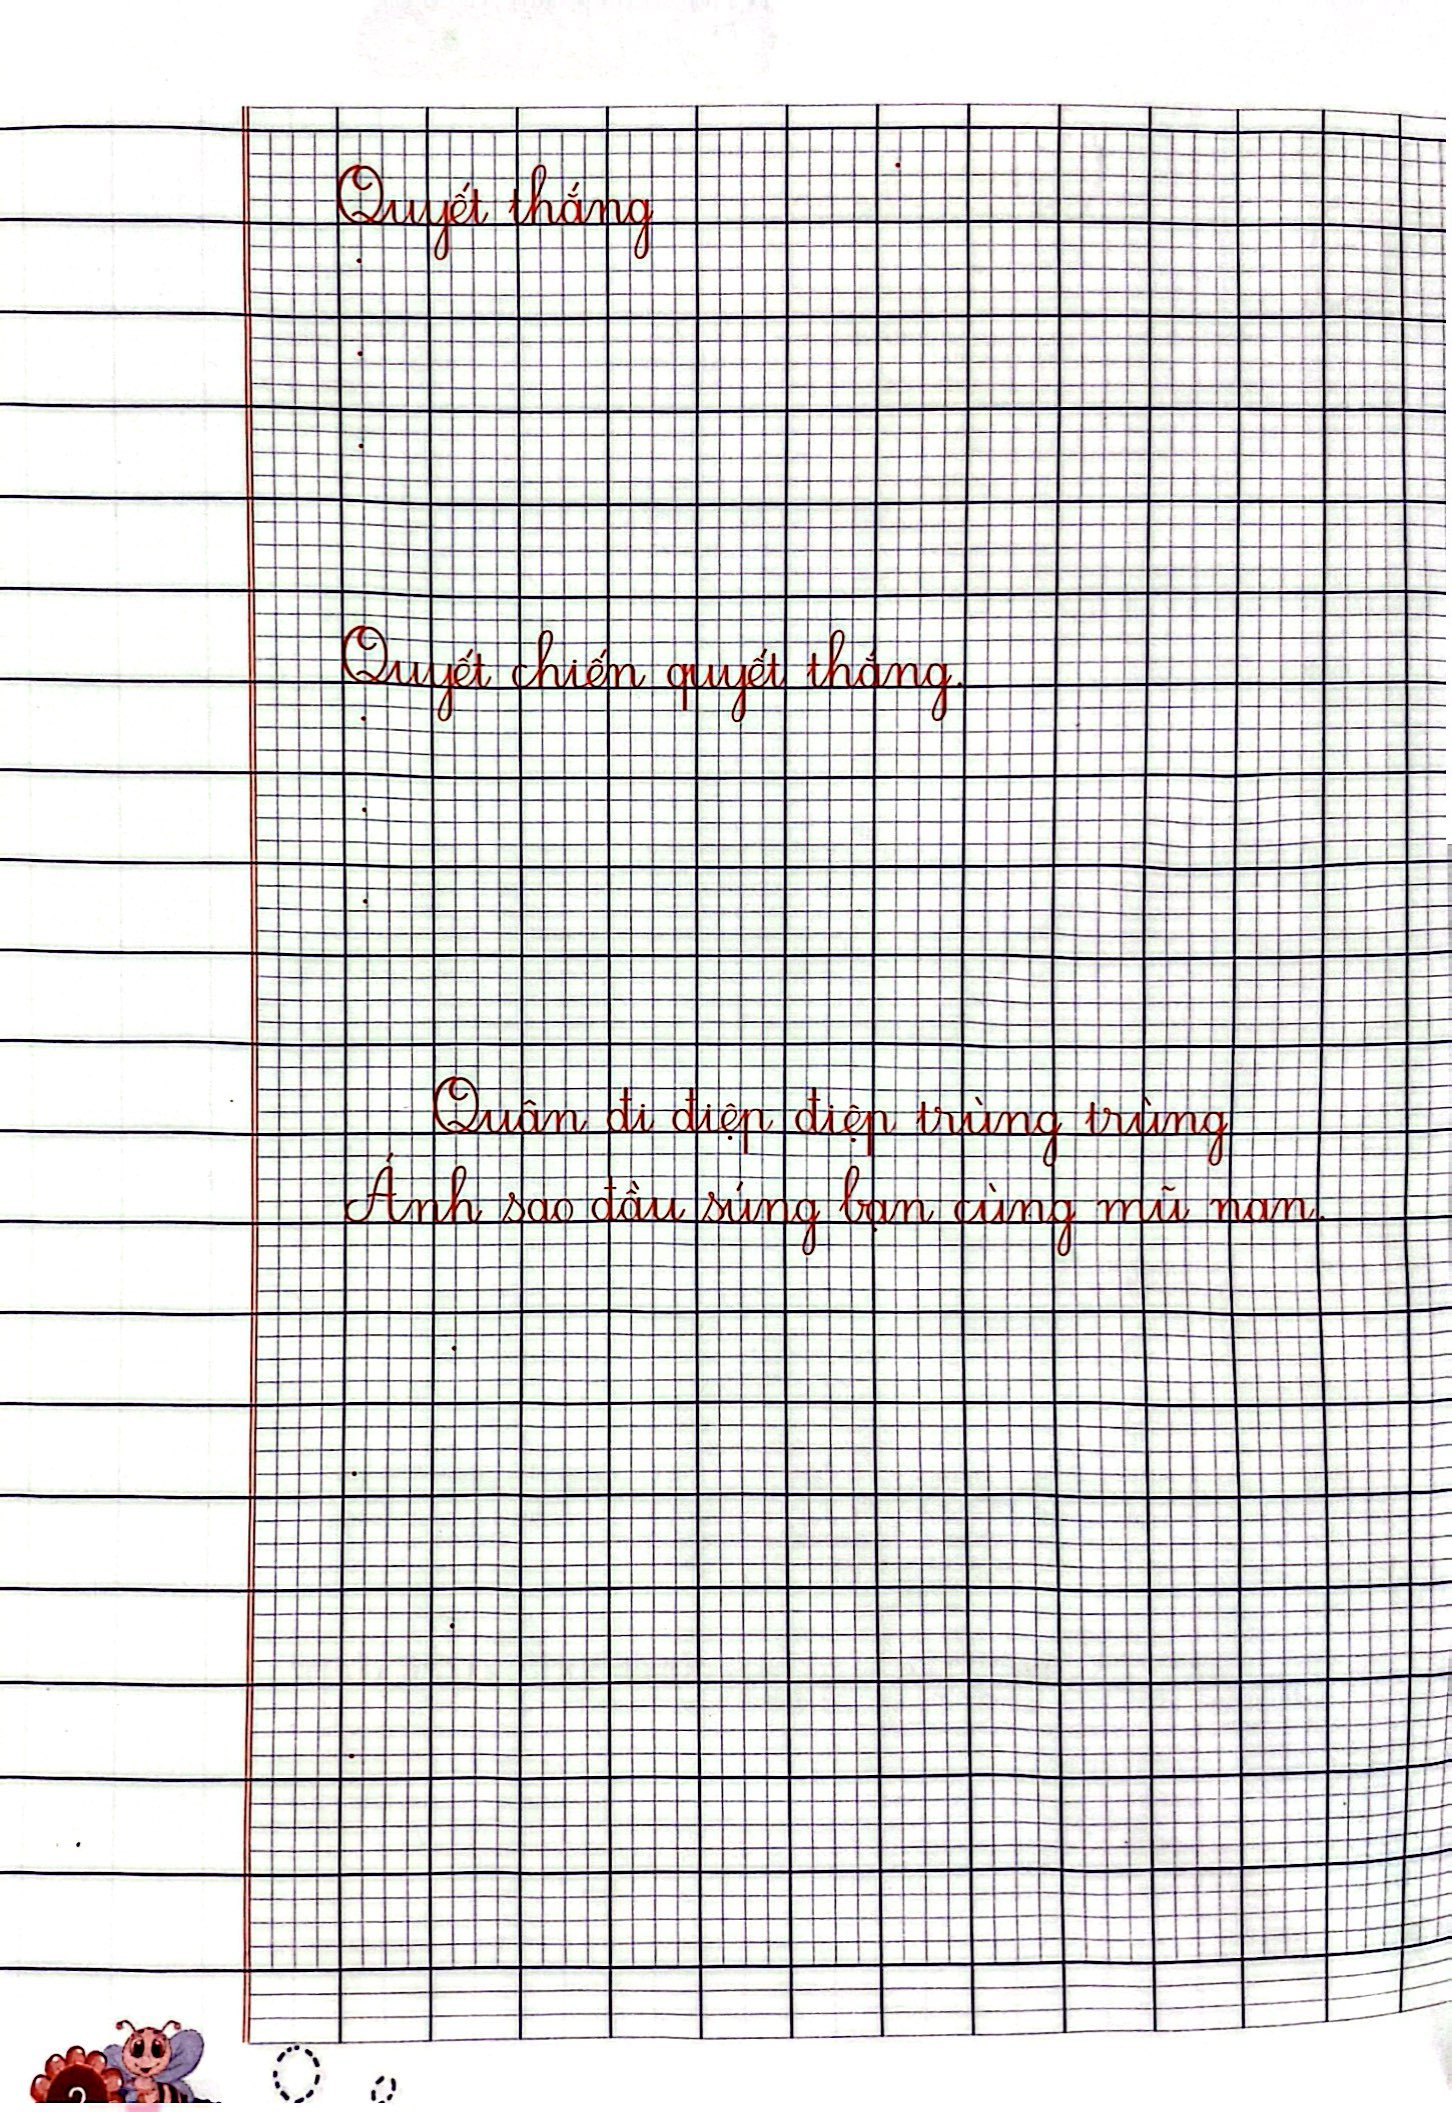 Quyết thắng
Quyết chiến quyết thắng.
Quân đi điệp điệp trùng trùng
Ánh sao đầu súng bạn cùng mũ nan.
2